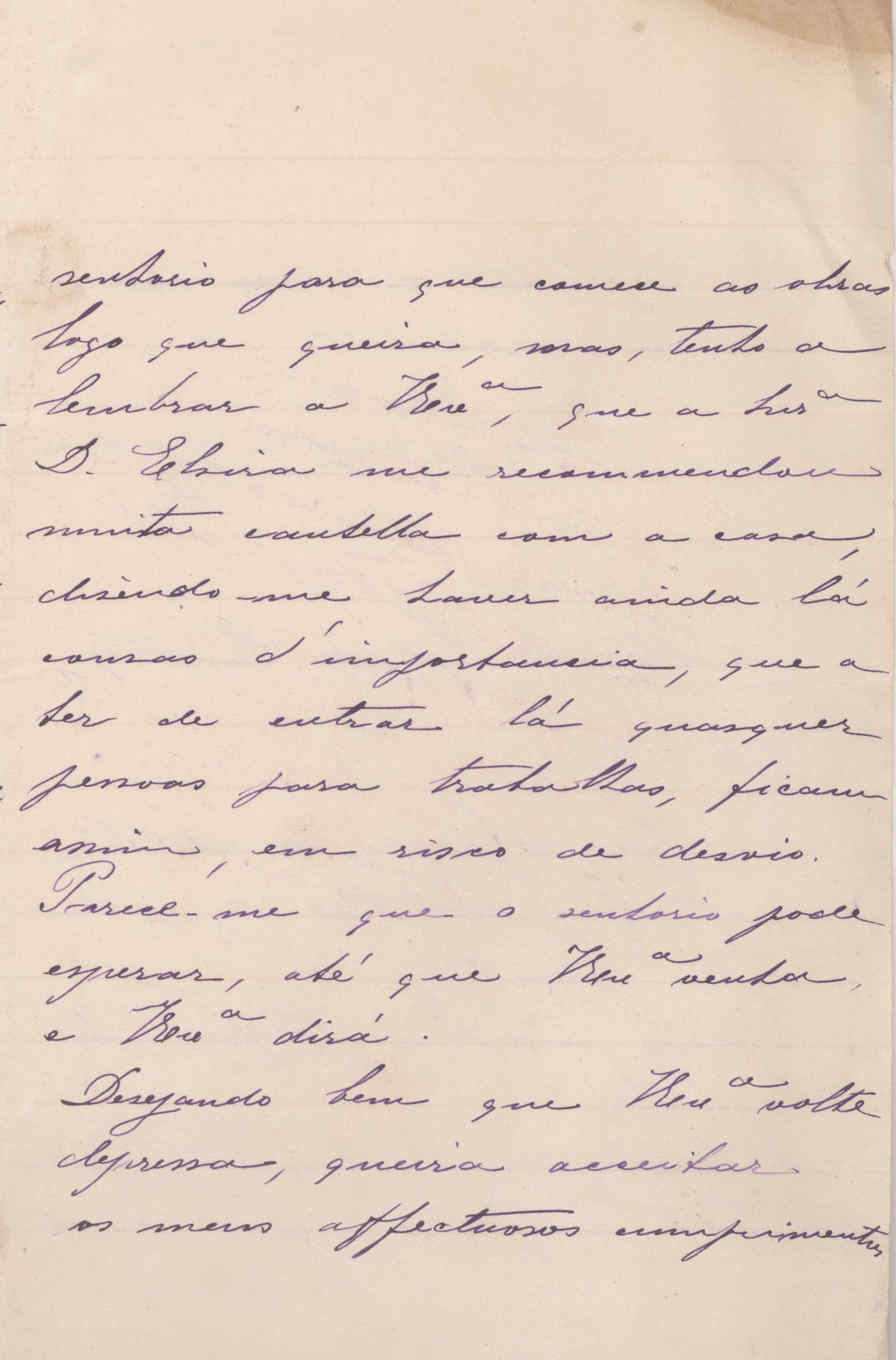 senhorio para que comece as obras
logo que queira, mas, tenho a
lembrar a VExª, que a Snrª
D. Elvira me recommendou
muita cautella com a casa,
disendo-me haver ainda lá
cousas d'importancia, que a
ter de entrar lá quasquer
pessoas para trabalhos, ficam
assim, em risco de desvio.
Parece-me que o senhorio pode
esperar, até que VExª venha,
e VExª dirá.
Desejando bem que VExª volte
depressa, queira acceitar
os meus affectuosos cumprimentos